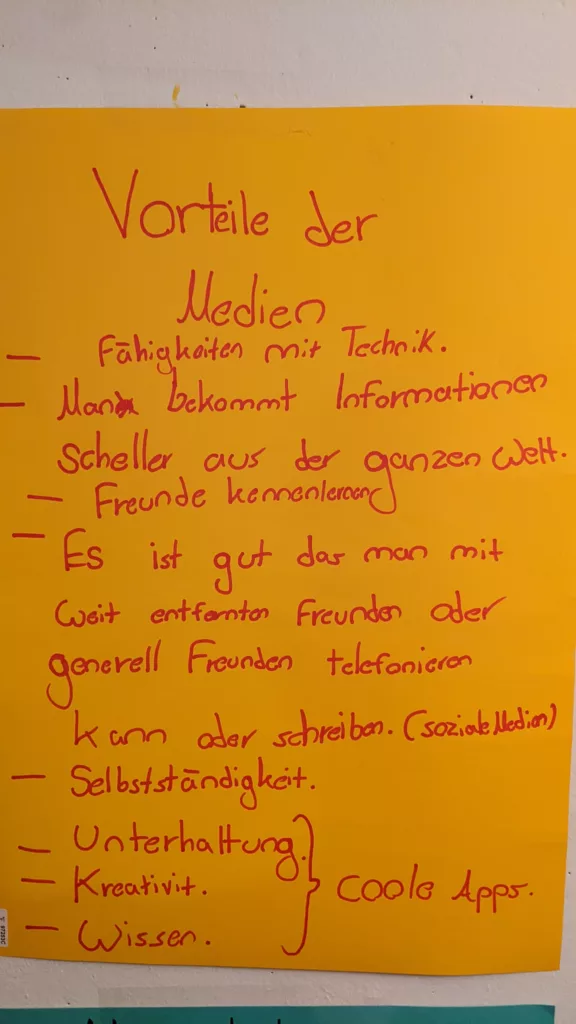 Vorteile der
Medien
— Fähigkeiten mit Technik.
— Man bekommt Informationen
Scheller aus der ganzen Welt.
— Freunde kennenlernen
— Es ist gut das man mit
weit entfernten Freunden oder
generell Freunden telefonieren
kann oder schreiben. (soziale Medien)
— Selbstständigkeit.
— Unterhaltung.
— Kreativit. } Coole Apps.
— Wissen.